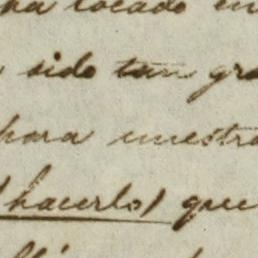 ha tocado en
sido tan gra
hora nuestro
(hacerlo) que